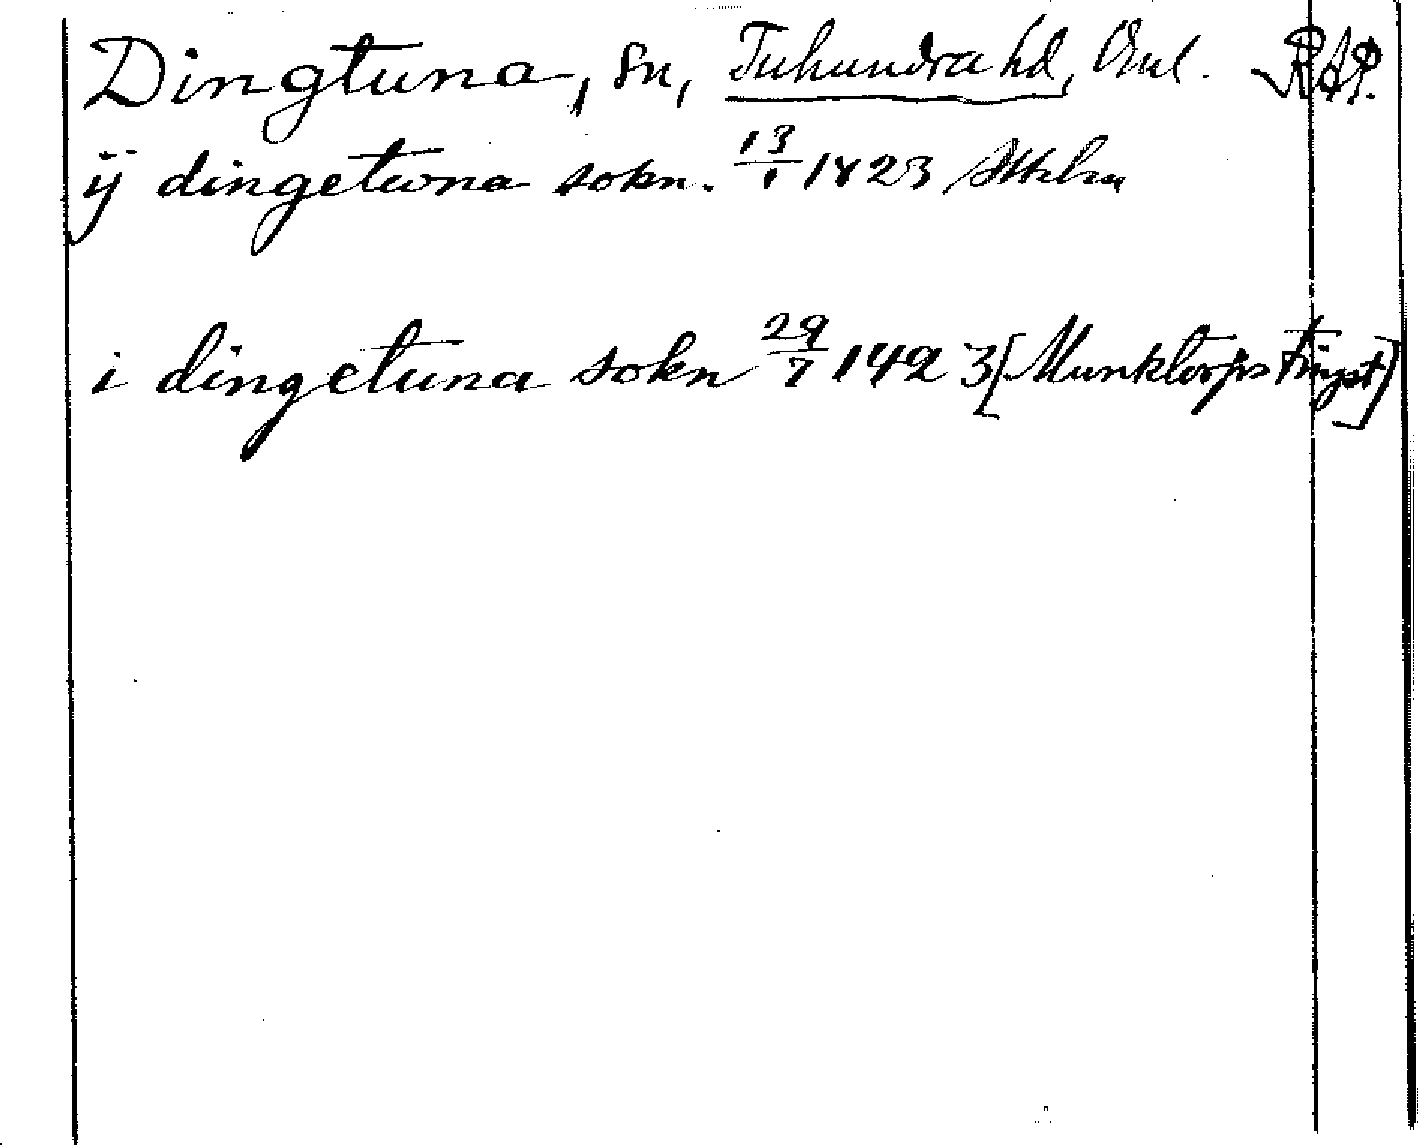 Dingtuna, sn, Tuhundra hd, Vml. RAP.
ij dingetwna sokn. 13/1 1423 Sthlm
i dingetuna sokn 29/7 1423 [Munktorps tingst]